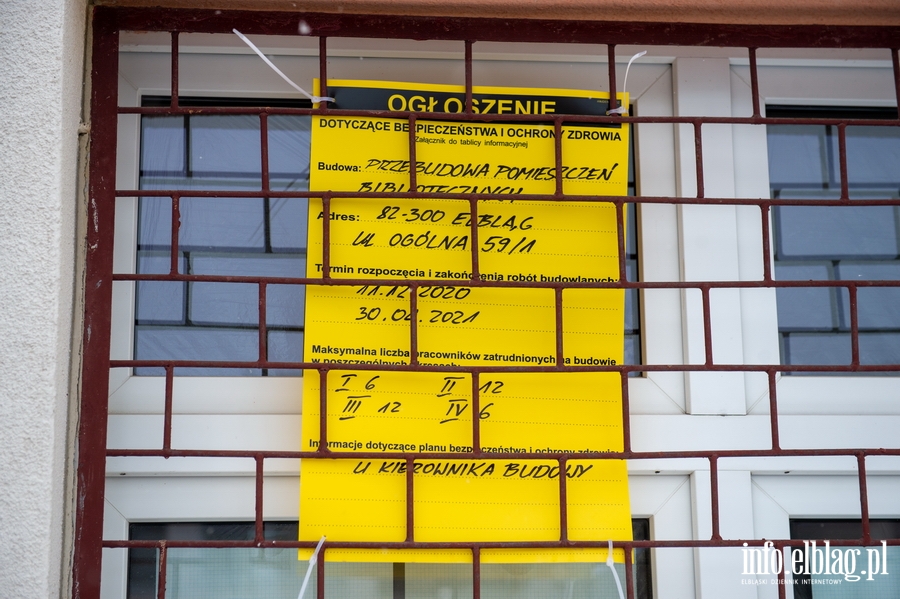 OGŁOSZENIE
DOTYCZĄCE BEZPIECZEŃSTWA I OCHRONY ZDROWIA
Załącznik do tablicy informacyjnej
Budowa: PRZEBUDOWA POMIESZCZEŃ
BIBLIOTECZNYCH
Adres: 82-300 ELBLĄG
UL OGÓLNA 59/1
Termin rozpoczęcia i zakończenia robót budowlanych:
11.12 2020
30.04.2021
Maksymalna liczba pracowników zatrudnionych na budowie
w poszczególnych okresach:
I 6 II 12
III 12 IV 6
Informacje dotyczące planu bezpieczeństwa i ochrony zdrowia:
U KIEROWNIKA BUDOWY
info.elblag.pl
ELBLĄSKI DZIENNIK INTERNETOWY